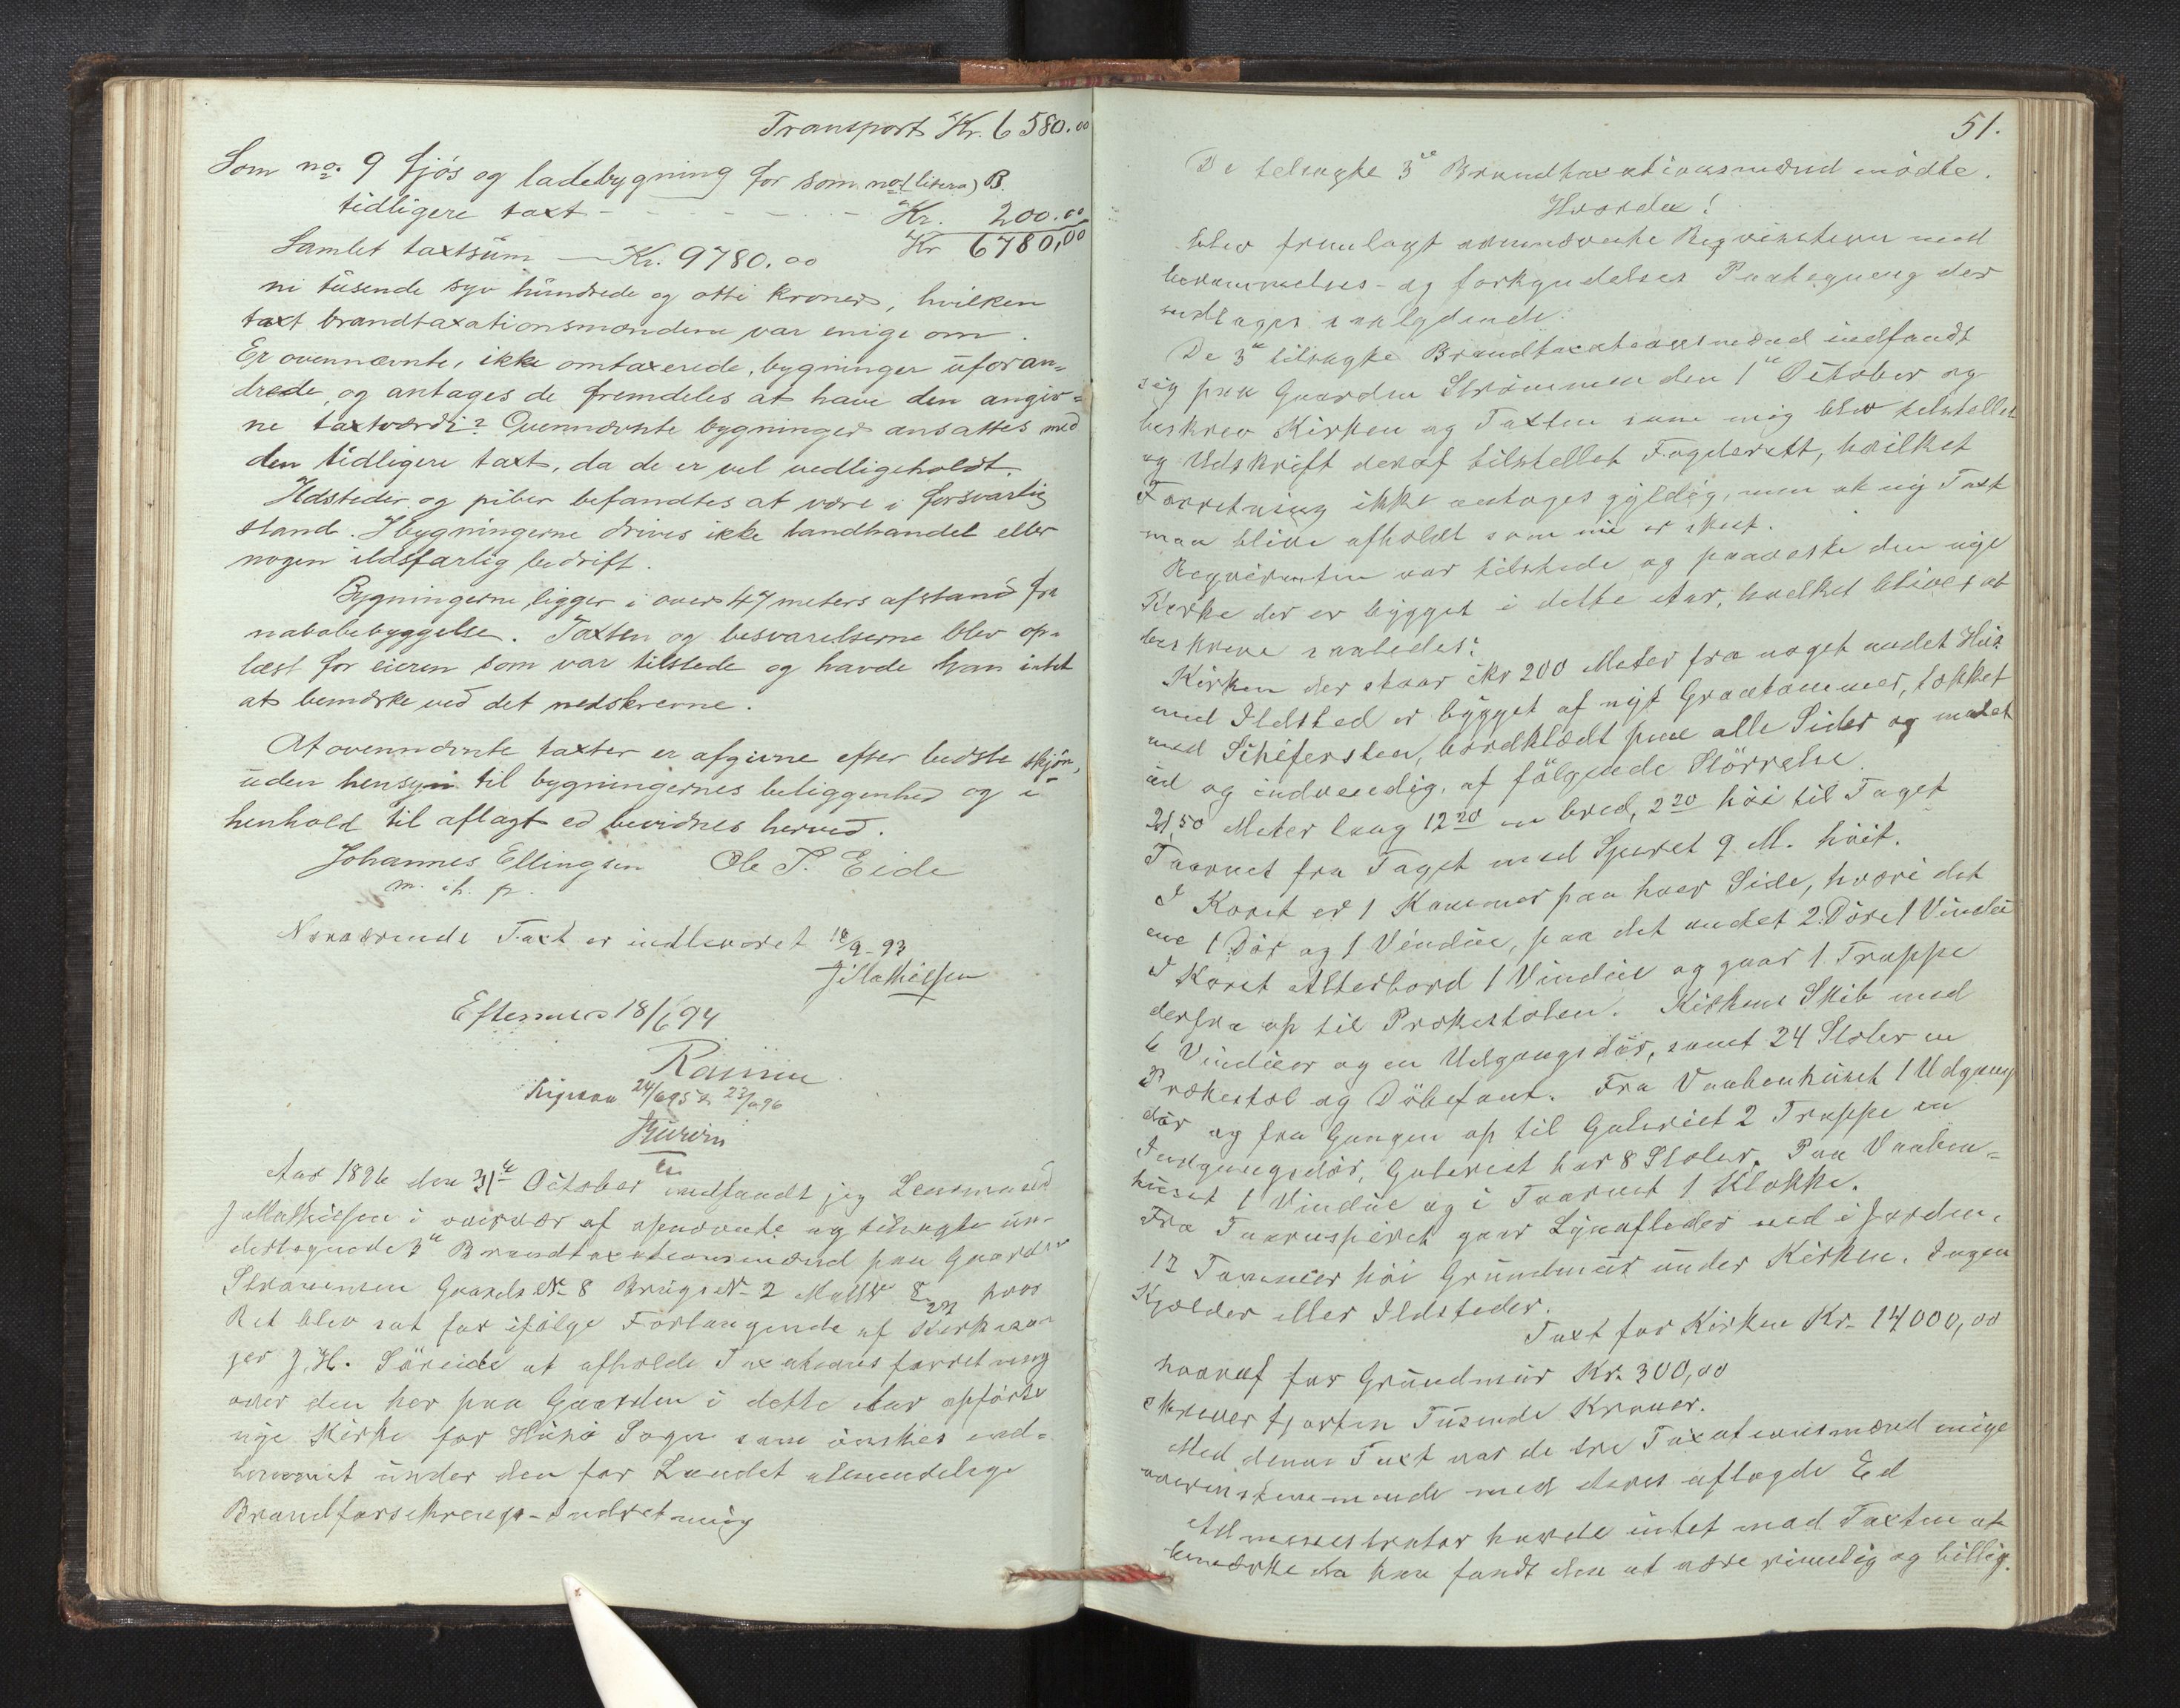 Transport Kr. 6580.00
Som no. 9 fjös og ladebygning for som no (litera) B.
tidligere taxt - - - - - - - Kr. 200.00
Samlet taxtsum — Kr. 9780.00 Kr 6780,00
ni tusende syv hundrede og otti kroner, hvilken
taxt brandtaxationsmændene var enige om.
Er ovennævnte, ikke omtaxerede, bygninger uforan-
drede, og antages de fremdeles at have den angiv-
ne taxtværdi? Ovennævnte bygninger ansattes med
den tidligere taxt, da de er vel vedligeholdt.
Ildsteder og piber befandtes at være i forsvarlig
stand. I bygningerne drives ikke landhandel eller
nogen ildsfarlig bedrift.
Bygningerne ligger i over 47 meters afstand fra
nabobebyggelse. Taxten og besvarelserne blev op-
læst for eieren som var tilstede og havde han intet
at bemærke ved det nedskrevne.
At ovennævnte taxter er afgivne efter bedste skjön,
uden hensyn til bygningernes beliggenhed og i
henhold til aflagt ed bevidnes herved.
Johannes Ellingsen Ole T. Eide
m. i h. p.
Nærværende Taxt er indleveret 18/9-93
J Mathiesen
Eftersees 18/6 94
24/6 95 23/6 96
Aar 1896 den 31te October indfandt jeg Lensmand
J Mathiesen i overvær af opnævnte og tilsagte un-
dertegnede 3de Brandtaxationsmænd paa Gaarden
Strömmen Gaards No 8 Brugs No 2 hvor
Ret blev sat for ifölge Forlangende af Kirkeværger
J. H. Söreide at afholde Taxationsforretning
over den her paa Gaarden i dette Aar opförte
nye Kirke for Sogn som önskes ind-
lemmet under den for Landet almindelige
Brandforsikrings-Indretning
51.
De tilsagte 3de Brandtaxationsmænd mödte.
Hvorda!
blev fremlagt ovennævnte Reqvisition med
berammelses- og forkyndelses Paategning der
indtages saalydende:
De 3de tilsagte Brandtaxationsmænd indfandt
sig paa Gaarden Strömmen den 1te October og
beskrev Kirken og Taxten som mig blev tilstillet
og Udskrift deraf tilstillet Fogderett, hvilket
Forretning ikke antages gyldig, men at ny Taxt
maa blive afholdt som nu er skeet.
Reqvirenten var tilstede og paaviste den nye
Kirke der er bygget i dette Aar, hvilket bliver at
beskrive saaledes:
Kirken der staar ikr 200 Meter fra noget andet Hus
med Ildsted er bygget af nyt Grantömmer, tækket
med Schifersten, bordklædt paa alle Sider og malet
ud og indvendig, af fölgende Störrelse.
21,50 Meter lang 12 20 m bred, 2 20 höi til Taget
Taarnet fra Taget med Spiret 9 M. höit.
I Koret er 1 Kammer paa hver Side, hvori det
ene 1 Dör og 1 Vindue, paa det andet 2 Döre 1 Vindu
I Koret Alterbord 1 Vindue og gaar 1 Trappe
derfra op til Prækestolen. Kirkens Skib med
6 Vinduer og en Udgangsdör, samt 24 Stoler en
Prækestol og Döbefont. Fra Vaabenhuset 1 Udgang
dör og fra Gangen op til Galeriet 2 Trappe en
Indgangsdör, Galeriet har 8 Stoler. Paa Vaaben-
huset 1 Vindue og i Taarnet 1 Klokke.
Fra Taarnspiret gaar Lynafleder ned i Jorden.
12 Tommer höi Grundmur under Kirken. Ingen
Kjælder eller Ildsteder.
Taxt for Kirken Kr. 14000,00
hvoraf for Grundmur Kr. 300,00
skriver fjorten Tusende Kroner.
Med denne Taxt var de tre Taxationsmænd enige
overinstemmende med deres aflagde Ed
Administrator havde intet mod Taxten at
bemærke da han fandt den at være rimelig og billig.